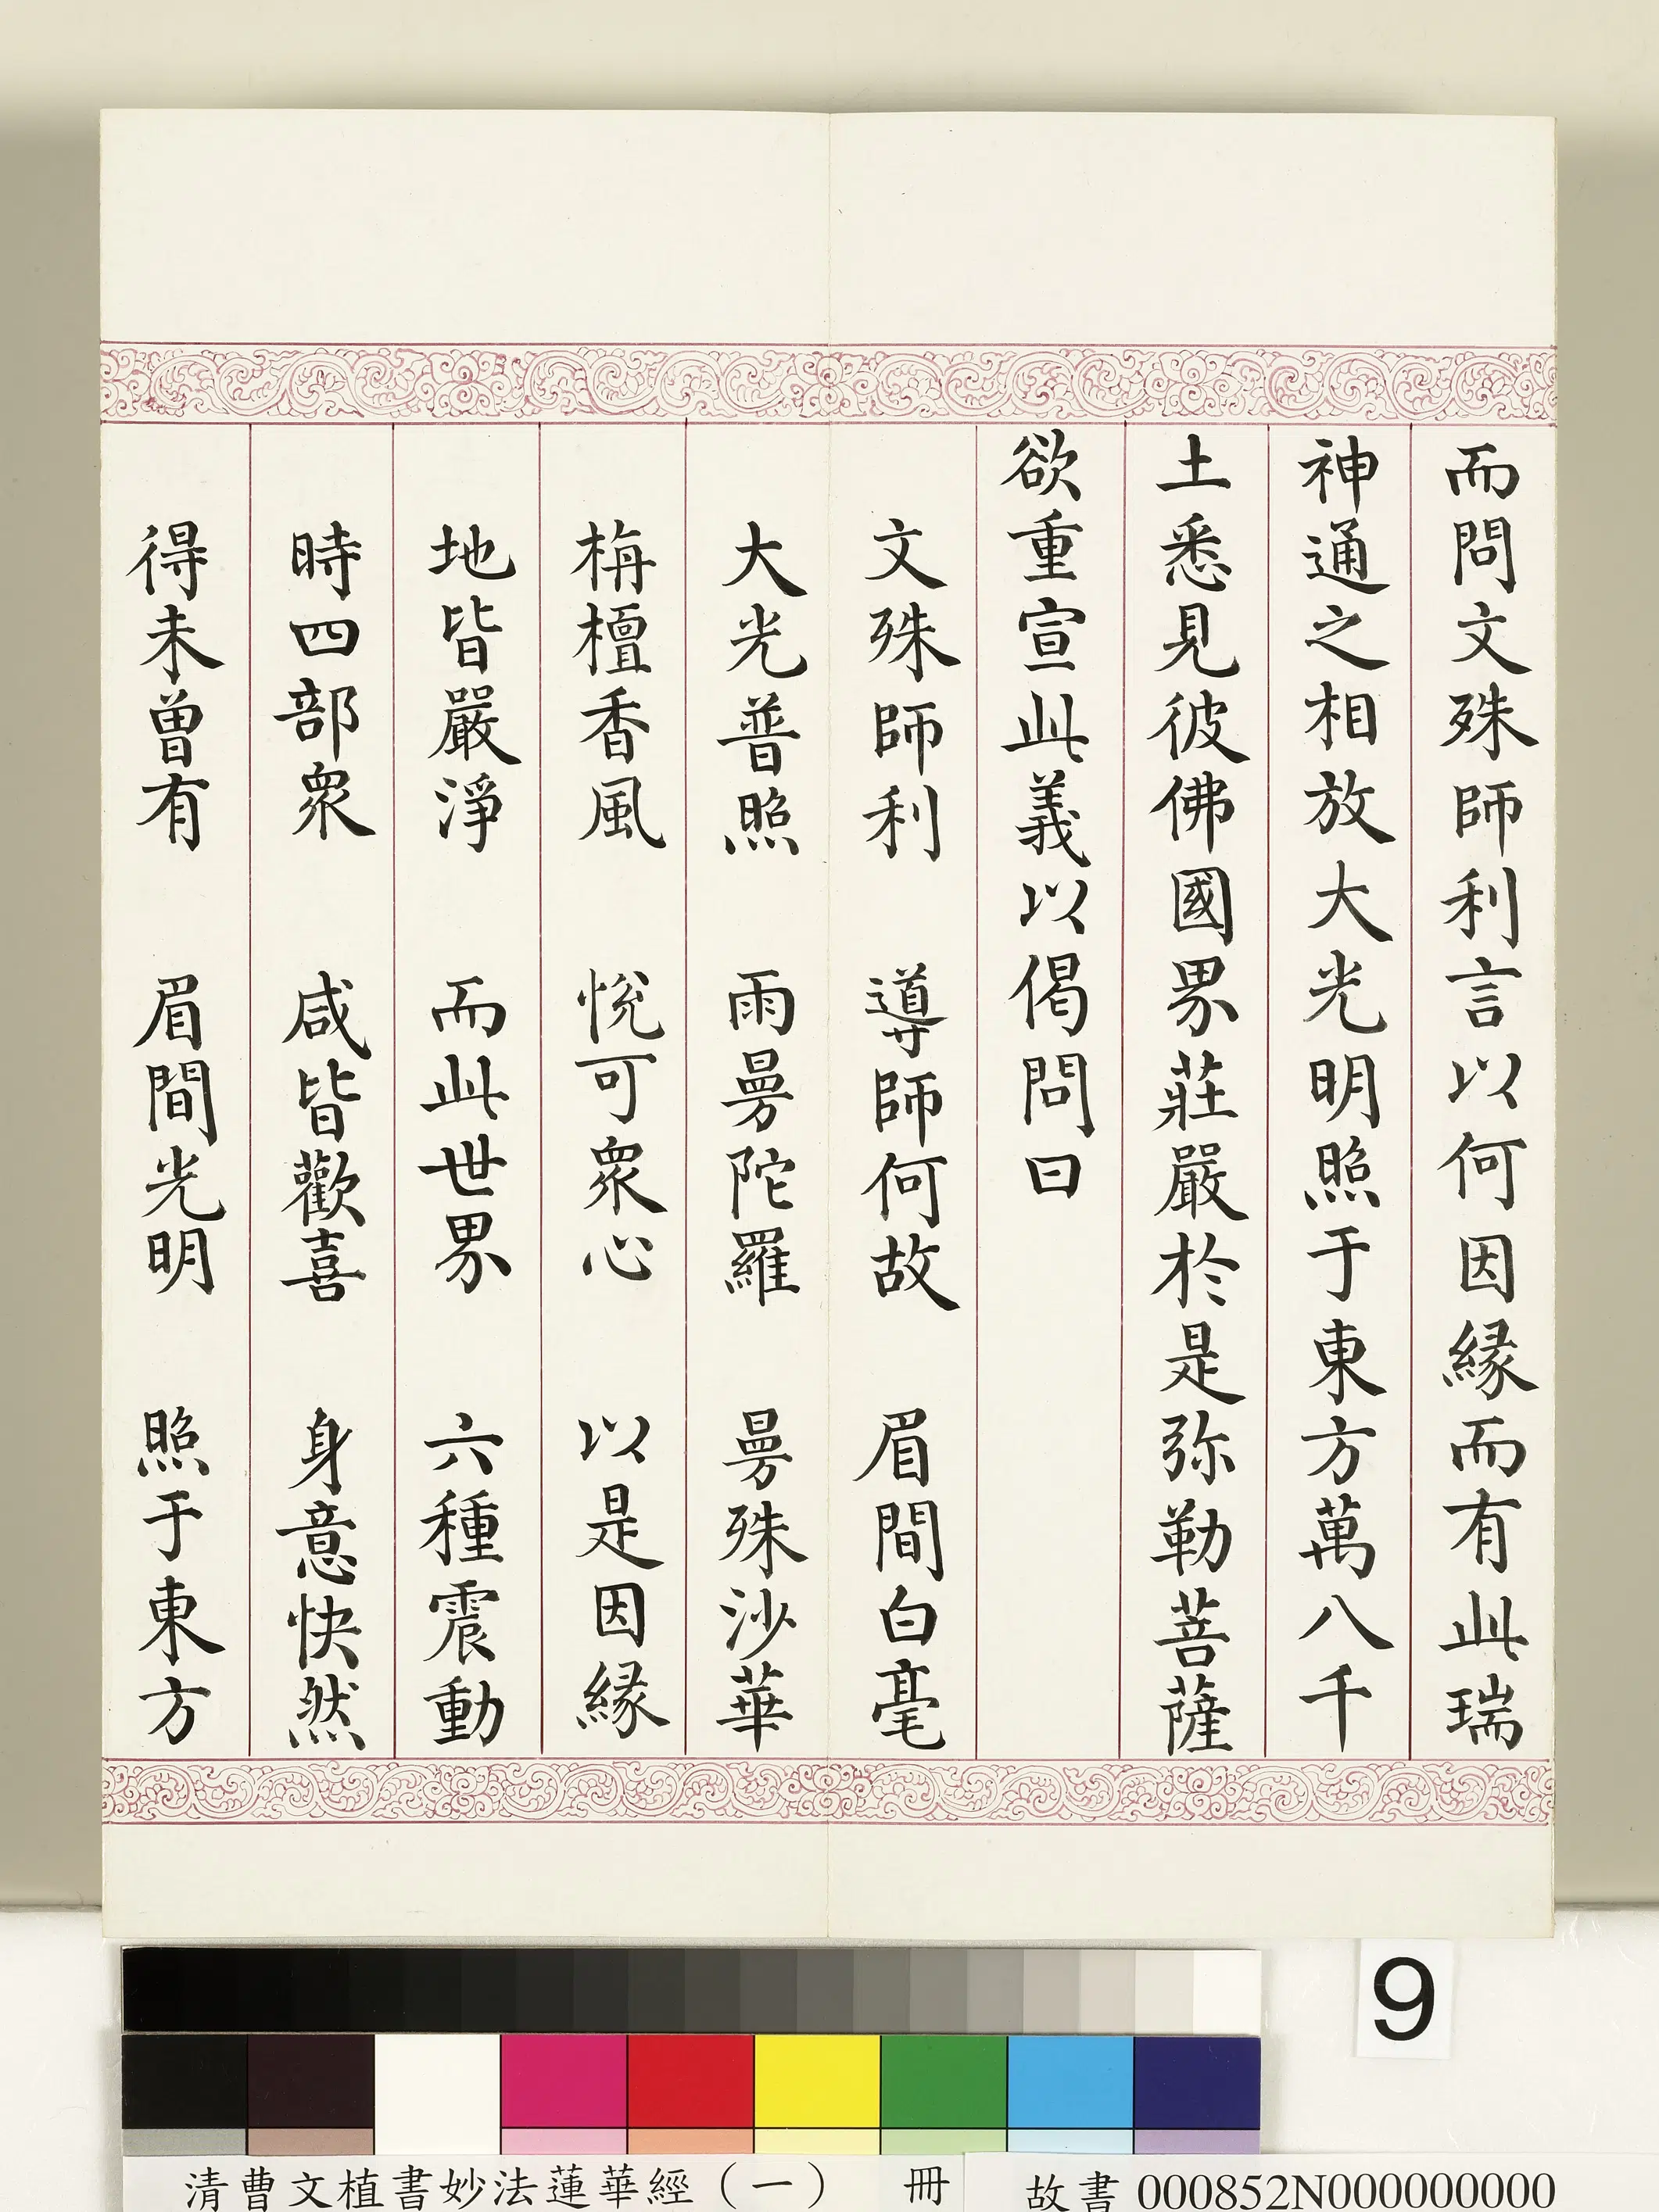 而問文殊師利言以何因緣而有此瑞
神通之相放大光明照于東方萬八千
土悉見彼佛國界莊嚴於是弥勒菩薩
欲重宣此義以偈問曰
文殊師利　導師何故　眉間白毫
大光普照　雨曼陀羅　曼殊沙華
栴檀香風　悅可眾心　以是因緣
地皆嚴淨　而此世界　六種震動
時四部眾　咸皆歡喜　身意快然
得未曾有　眉間光明　照于東方
9
清曹文植書妙法蓮華經（一）　冊　故書000852N000000000